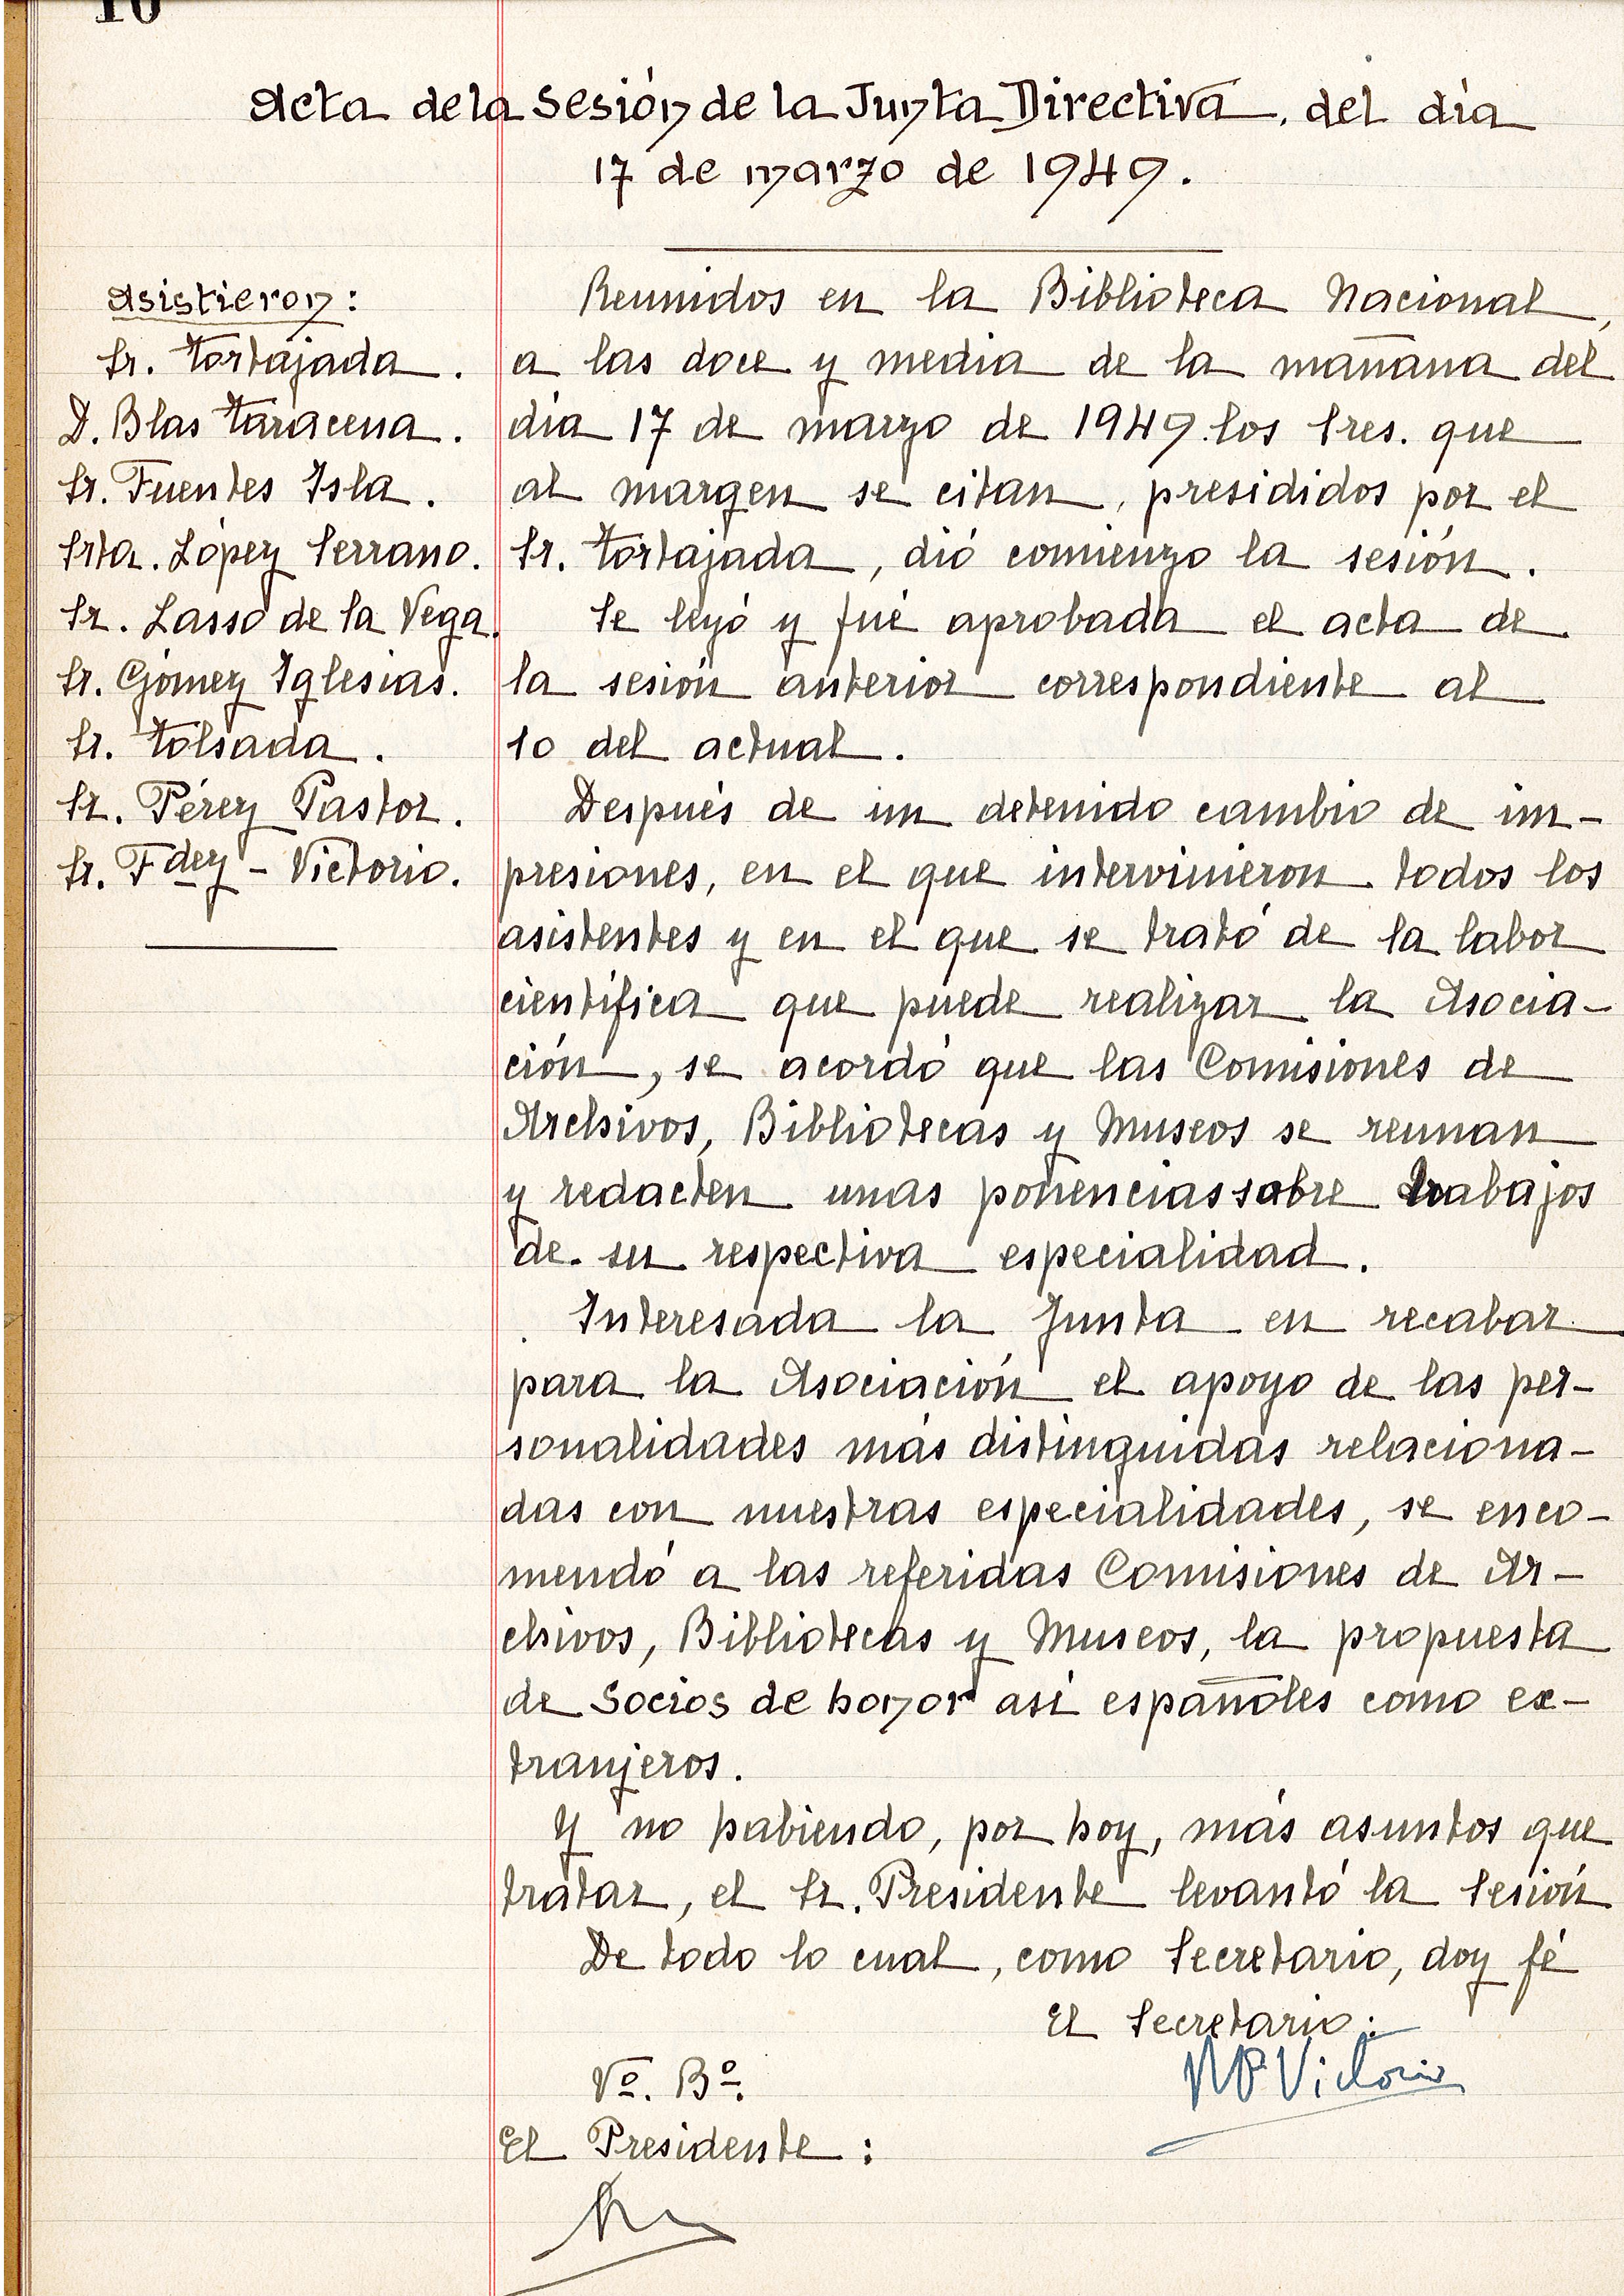 10
Acta de la Sesión de la Junta Directiva, del día
17 de marzo de 1949.
Asistieron:
Sr. Tortajada.
D. Blas Taracena.
Sr. Fuentes Isla.
Srta. López Serrano.
Sr. Lasso de la Vega.
Sr. Gómez Iglesias.
Sr. Tolsada.
Sr. Pérez Pastor.
Sr. Fdez - Victorio.
Reunidos en la Biblioteca Nacional,
a las doce y media de la mañana del
día 17 de marzo de 1949. los Sres. que
al margen se citan, presididos por el
Sr. Tortajada, dió comienzo la sesión.
Se leyó y fué aprobada el acta de
la sesión anterior correspondiente al
10 del actual.
Después de un detenido cambio de im-
presiones, en el que intervinieron todos los
asistentes y en el que se trató de la labor
científica que puede realizar la Asocia-
ción, se acordó que las Comisiones de
Archivos, Bibliotecas y Museos se reunan
y redacten unas ponencias sobre trabajos
de su respectiva especialidad.
Interesada la Junta en recabar
para la Asociación el apoyo de las per-
sonalidades más distinguidas relaciona-
das con nuestras especialidades, se enco-
mendó a las referidas Comisiones de Ar-
chivos, Bibliotecas y Museos, la propuesta
de Socios de honor así españoles como ex-
tranjeros.
Y no habiendo, por hoy, más asuntos que
tratar, el Sr. Presidente levantó la Sesión
De todo lo cual, como Secretario, doy fé
El Secretario:
Victorio
Vº. Bº.
El Presidente: